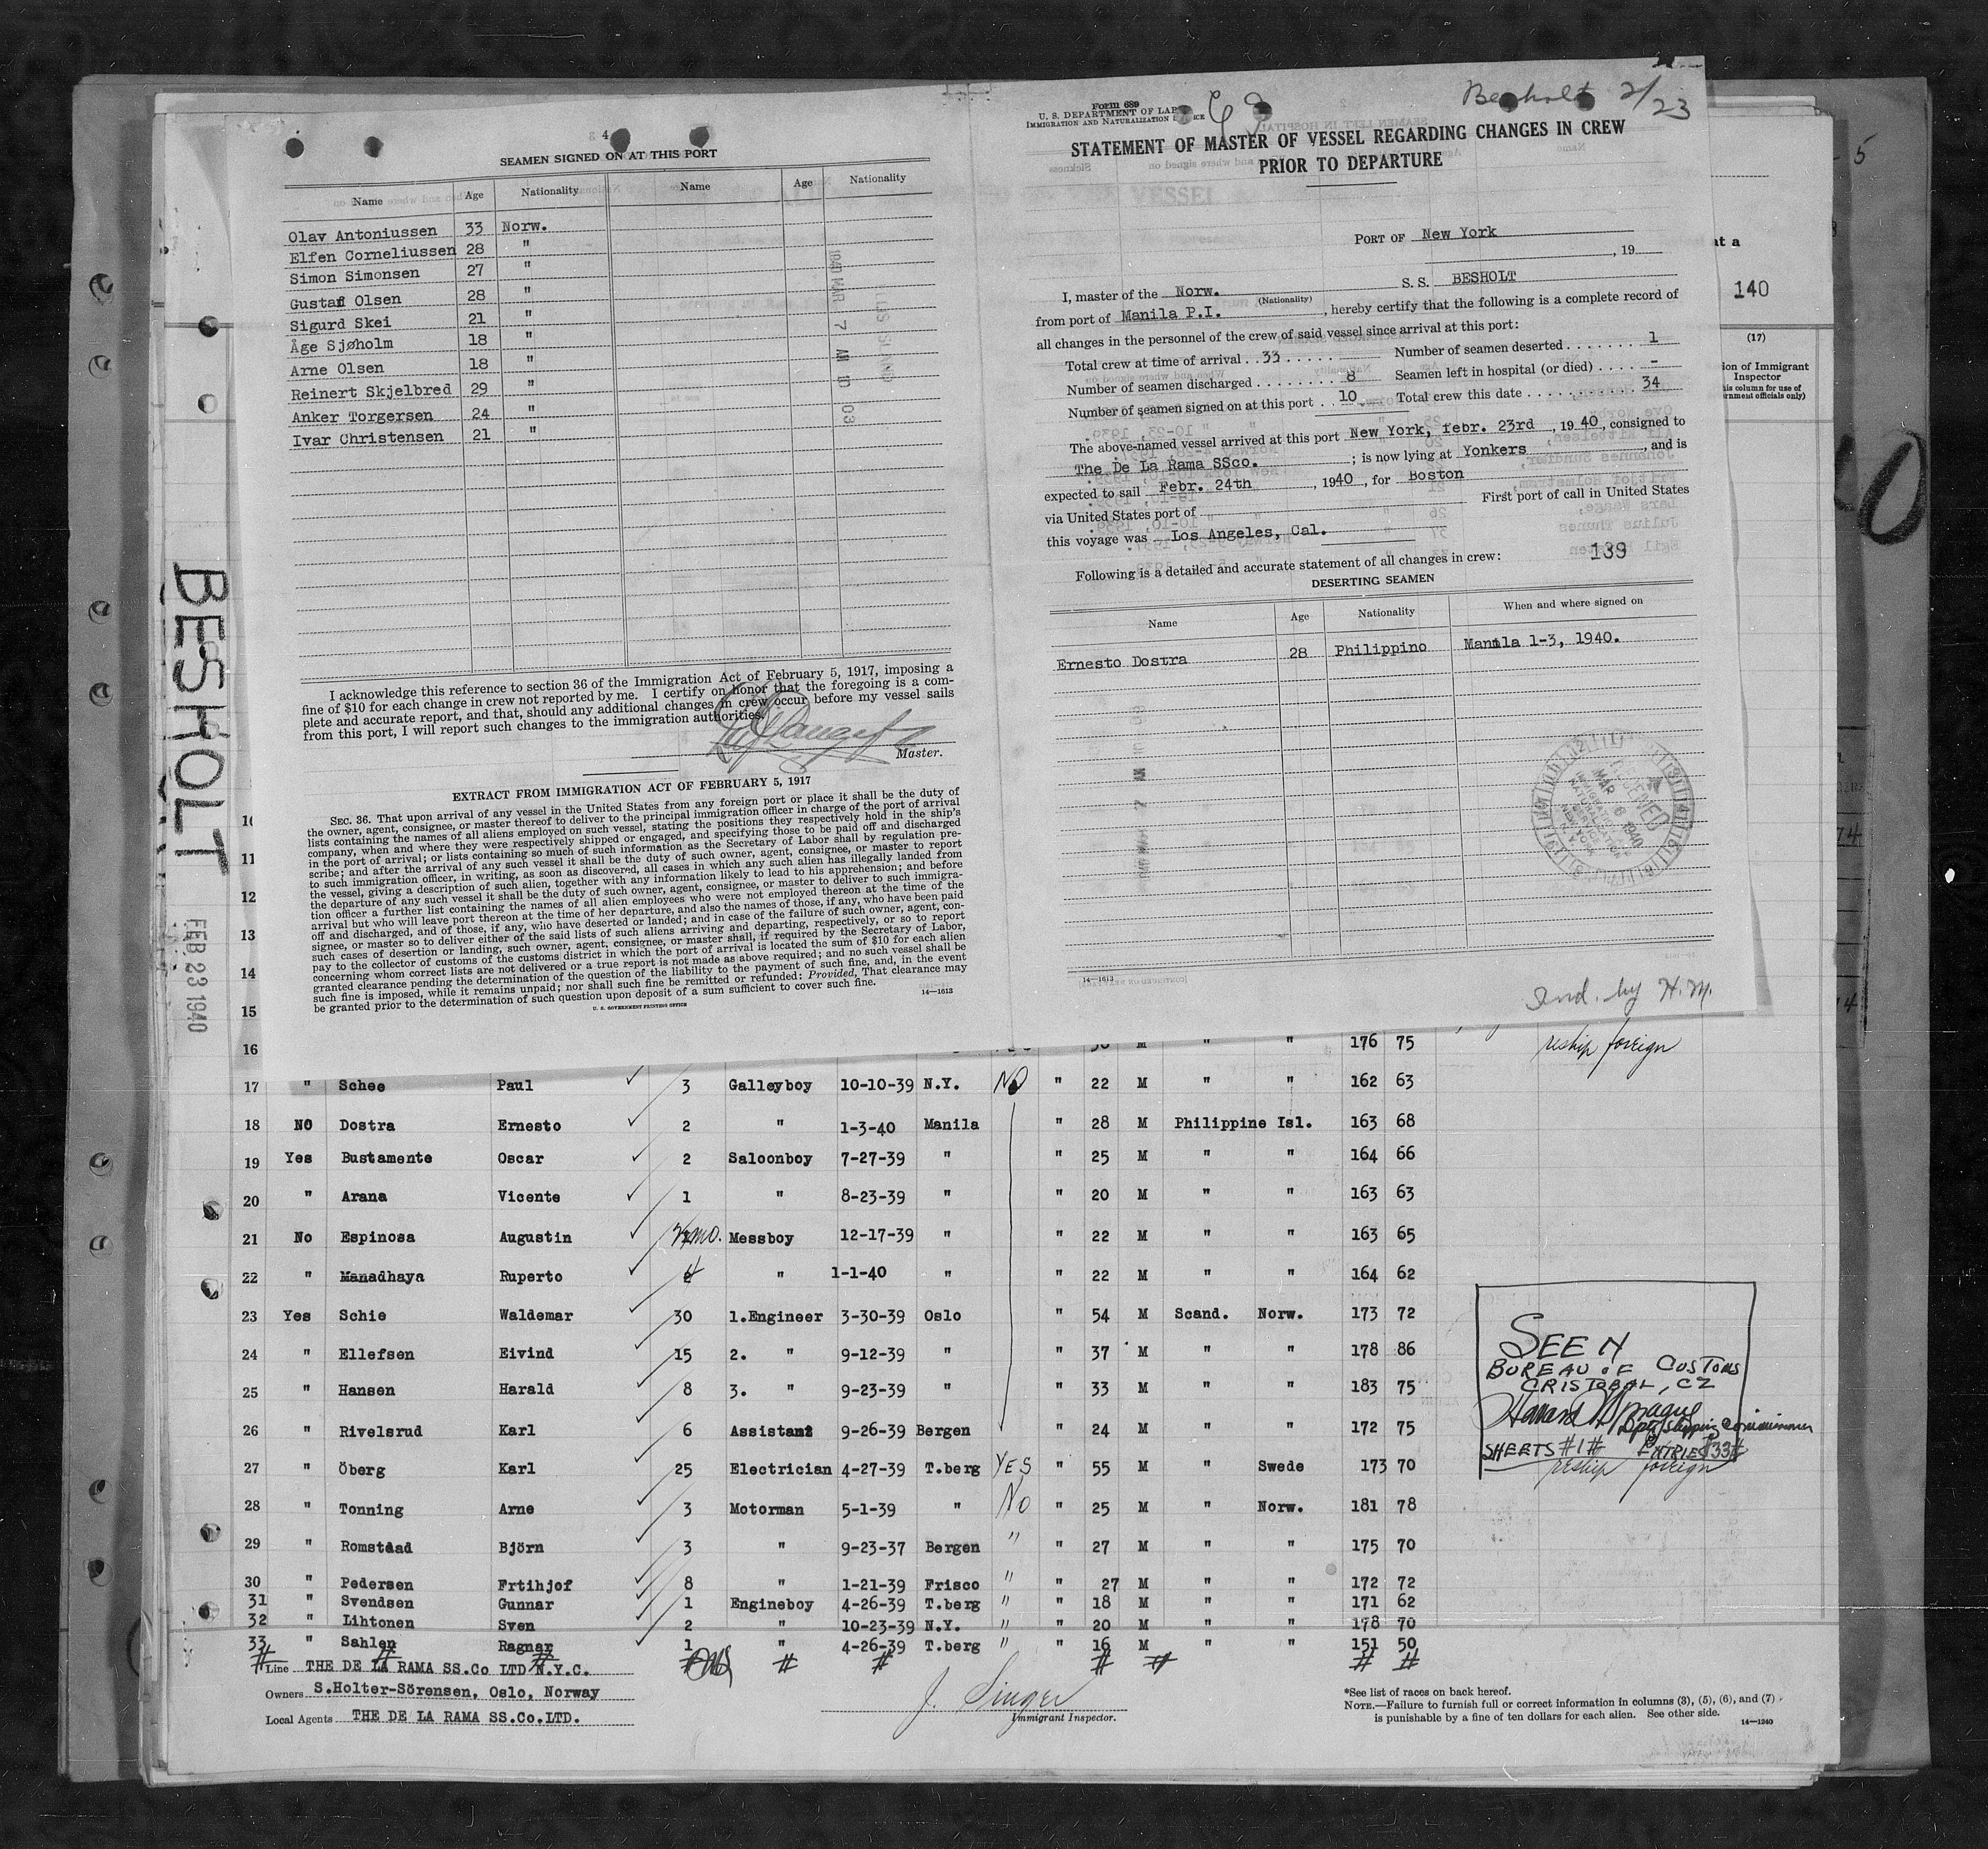 4
SEAMEN SIGNED ON AT THIS PORT
Name Age Nationality Name Age Nationality
Olav Antoniussen 33 Norw.
Elfen Corneliussen 28 "
Simon Simonsen 27 "
Gustaf Olsen 28 "
Sigurd Skei 21 "
Åge Sjøholm 18 "
Arne Olsen 18 "
Reinert Skjelbred 29 "
Anker Torgersen 24 "
Ivar Christensen 21 "
1940 MAR 7 AM 10 03
I acknowledge this reference to section 36 of the Immigration Act of February 5, 1917, imposing a
fine of $10 for each change in crew not reported by me. I certify on honor that the foregoing is a com-
plete and accurate report, and that, should any additional changes in crew occur before my vessel sails
from this port, I will report such changes to the immigration authorities.
Master.
EXTRACT FROM IMMIGRATION ACT OF FEBRUARY 5, 1917
SEC. 36. That upon arrival of any vessel in the United States from any foreign port or place it shall be the duty of
the owner, agent, consignee, or master thereof to deliver to the principal immigration officer in charge of the port of arrival
lists containing the names of all aliens employed on such vessel, stating the positions they respectively hold in the ship's
company, when and where they were respectively shipped or engaged, and specifying those to be paid off and discharged
in the port of arrival; or lists containing so much of such information as the Secretary of Labor shall by regulation pre-
scribe; and after the arrival of any such vessel it shall be the duty of such owner, agent, consignee, or master to report
to such immigration officer, in writing, as soon as discovered, all cases in which any such alien has illegally landed from
the vessel, giving a description of such alien, together with any information likely to lead to his apprehension; and before
the departure of any such vessel it shall be the duty of such owner, agent, consignee, or master to deliver to such immigra-
tion officer a further list containing the names of all alien employees who were not employed thereon at the time of the
arrival but who will leave port thereon at the time of her departure, and also the names of those, if any, who have been paid
off and discharged, and of those, if any, who have deserted or landed; and in case of the failure of such owner, agent, con-
signee, or master so to deliver either of the said lists of such aliens arriving and departing, respectively, or so to report
such cases of desertion or landing, such owner, agent, consignee, or master shall, if required by the Secretary of Labor,
pay to the collector of customs of the customs district in which the port of arrival is located the sum of $10 for each alien
concerning whom correct lists are not delivered or a true report is not made as above required; and no such vessel shall be
granted clearance pending the determination of the question of the liability to the payment of such fine, and, in the event
such fine is imposed, while it remains unpaid; nor shall such fine be remitted or refunded: Provided, That clearance may
be granted prior to the determination of such question upon deposit of a sum sufficient to cover such fine.
14—1613
U. S. GOVERNMENT PRINTING OFFICE
Form 689
U. S. DEPARTMENT OF LAB
IMMIGRATION AND NATURALIZATION
Besholt 2/23
STATEMENT OF MASTER OF VESSEL REGARDING CHANGES IN CREW
PRIOR TO DEPARTURE
PORT OF New York
, 19
I, master of the Norw. S. S. BESHOLT
(Nationality)
from port of Manila P.I. , hereby certify that the following is a complete record of
all changes in the personnel of the crew of said vessel since arrival at this port:
Total crew at time of arrival . . 33 . . . . . Number of seamen deserted . . . . . . . 1
Number of seamen discharged . . . . . . . . 8 Seamen left in hospital (or died) . . . . -
Number of seamen signed on at this port . . 10 Total crew this date . . . . . . . . . . . 34
The above-named vessel arrived at this port New York, febr. 23rd , 1940, consigned to
The De La Rama SSco. ; is now lying at Yonkers , and is
expected to sail Febr. 24th , 1940 , for Boston
via United States port of First port of call in United States
this voyage was Los Angeles, Cal.
139
Following is a detailed and accurate statement of all changes in crew:
DESERTING SEAMEN
Name Age Nationality When and where signed on
Ernesto Dostra 28 Philippino Manila 1-3, 1940.
RECEIVED
MAR 6 1940
14—1613
Ind. by H.M.
5
at a
140
(17)
ion of Immigrant
Inspector
his column for use of
rnment officials only)
BESHOLT
FEB 23 1940
10
11
12
13
14
15
16 M " " 176 75 reship foreign
17 " Schee Paul 3 Galleyboy 10-10-39 N.Y. NO " 22 M " " 162 63
18 NO Dostra Ernesto 2 " 1-3-40 Manila " 28 M Philippine Isl. 163 68
19 Yes Bustamente Oscar 2 Saloonboy 7-27-39 " " 25 M " " 164 66
20 " Arana Vicente 1 " 8-23-39 " " 20 M " " 163 63
21 No Espinosa Augustin mo. Messboy 12-17-39 " " 22 M " " 163 65
22 " Manadhaya Ruperto " 1-1-40 " " 22 M " " 164 62
23 Yes Schie Waldemar 30 1.Engineer 3-30-39 Oslo " 54 M Scand. Norw. 173 72
24 " Ellefsen Eivind 15 2. " 9-12-39 " " 37 M " " 178 86
25 " Hansen Harald 8 3. " 9-23-39 " " 33 M " " 183 75
26 " Rivelsrud Karl 6 Assistant 9-26-39 Bergen " 24 M " " 172 75
27 " Öberg Karl 25 Electrician 4-27-39 T.berg YES " 55 M " Swede 173 70 reship foreign
28 " Tonning Arne 3 Motorman 5-1-39 " No " 25 M " Norw. 181 78
29 " Romstad Björn 3 " 9-23-37 Bergen " " 27 M " " 175 70
30 " Pedersen Frtihjof 8 " 1-21-39 Frisco " " 27 M " " 172 72
31 " Svendsen Gunnar 1 Engineboy 4-26-39 T.berg " " 18 M " " 171 62
32 " Lihtonen Sven 2 " 10-23-39 N.Y. " " 20 M " " 178 70
33 " Sahlen Ragnar 1 " 4-26-39 T.berg " " 16 M " " 151 50
SEEN
BUREAU OF CUSTOMS
CRISTOBAL, CZ
Dpty Shipping Commissioner
SHEETS #1# ENTRIES #33#
Line THE DE LA RAMA SS.Co LTD N.Y.C.
Owners S.Holter-Sörensen, Oslo, Norway
Local Agents THE DE LA RAMA SS.Co.LTD.
J. Singer
Immigrant Inspector.
*See list of races on back hereof.
NOTE.—Failure to furnish full or correct information in columns (3), (5), (6), and (7)
is punishable by a fine of ten dollars for each alien. See other side.
14—1240